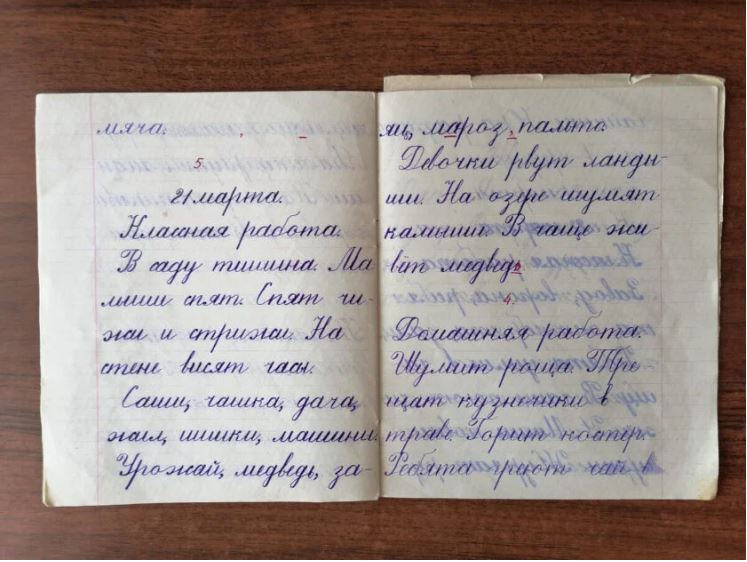 мяча.
5
21 марта.
Классная работа.
В саду тишина. Ма
лыши спят. Спят чи-
жи и стрижи. На
стене висят часы.
Саши, чашка, дача,
жил, шишки, машины.
Урожай, медведь, за-
яц, мароз, пальто.
Девочки рвут ланды-
ши. На озере шумят
камыши. В чаще жи-
вёт медведь
4
Домашняя работа.
Шумит роща. Тре-
щат кузнечики в
траве. Горит костер.
Ребята чай